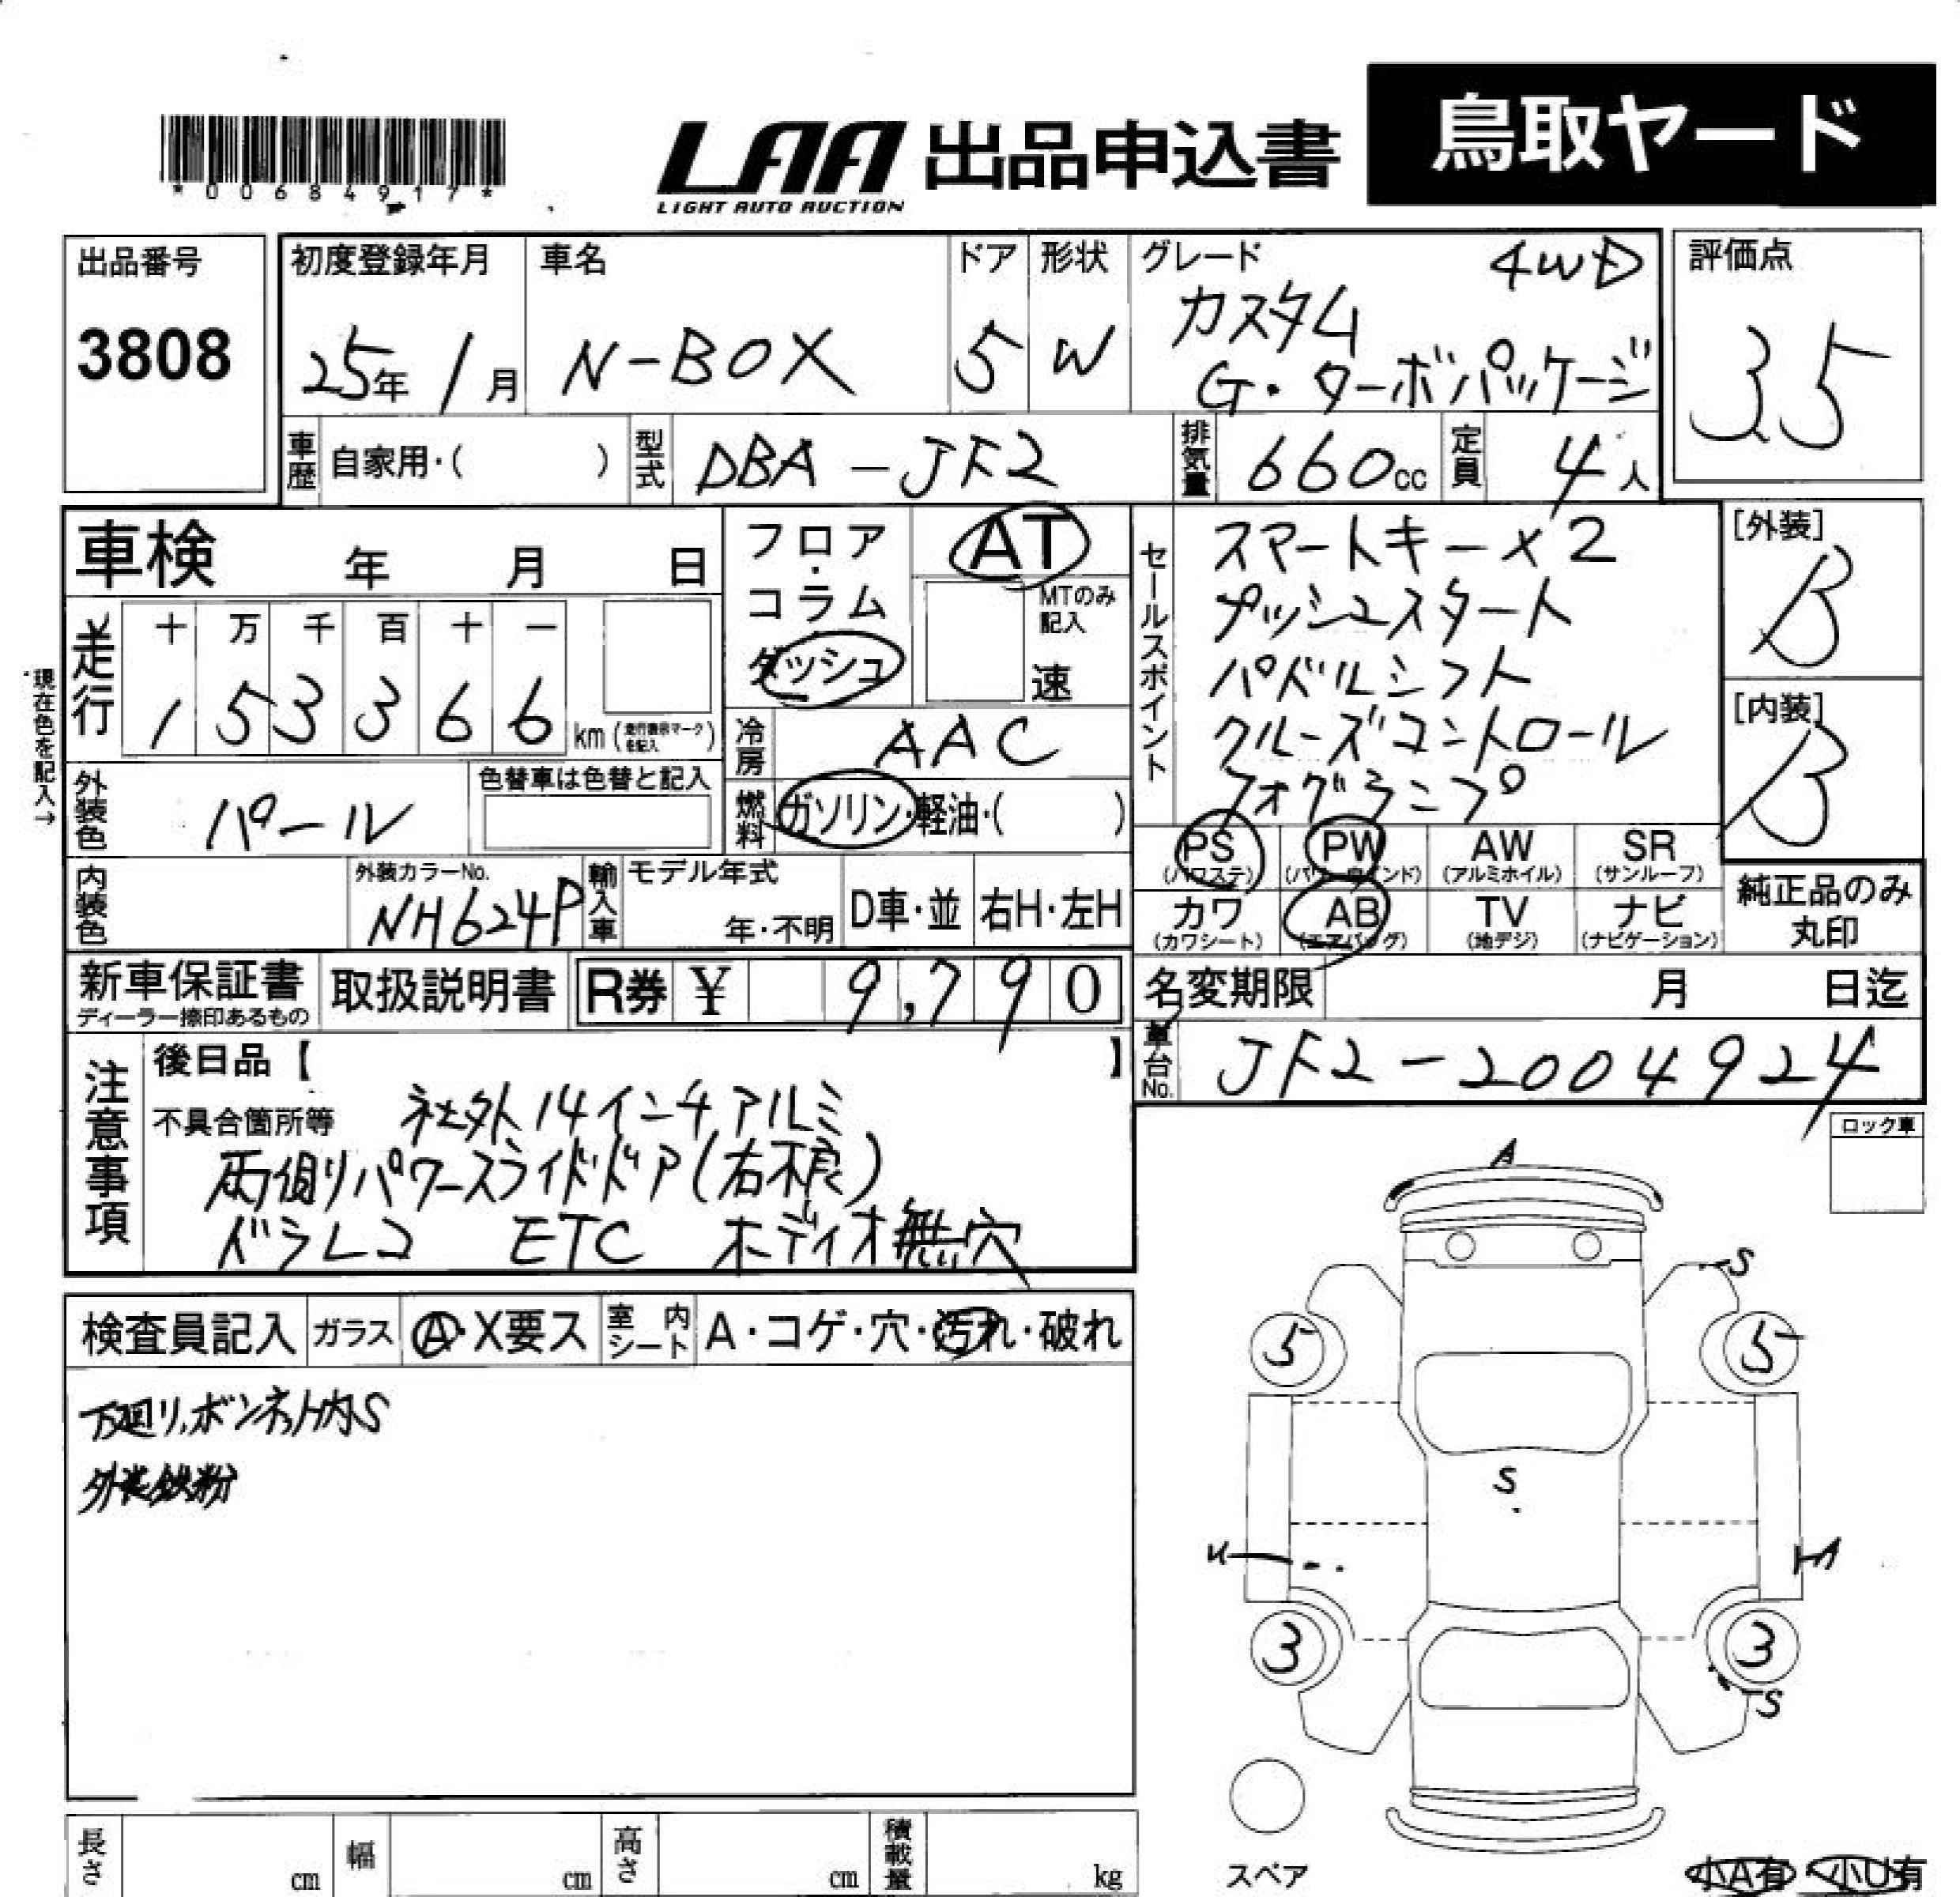 *00684917*
LAA 出品申込書 鳥取ヤード
LIGHT AUTO AUCTION
出品番号 初度登録年月 車名 ドア 形状 グレード 4WD 評価点
3808 25年 1月 N-BOX 5 W カスタム
G・ターボパッケージ 3.5
車歴 自家用・( ) 型式 DBA-JF2 排気量 660cc 定員 4人
車検 年 月 日
フロア・コラム
ダッシュ
AT
MTのみ記入
速
セールスポイント
スマートキー×2
プッシュスタート
パドルシフト
クルーズコントロール
フォグランプ
[外装]
B
[内装]
B
現在色を記入→
走行 十 万 千 百 十 一
1 5 3 3 6 6 km (走行表示マークを記入)
冷房 AAC
外装色 パール 色替車は色替と記入
燃料 ガソリン・軽油・( )
PS (パワステ) PW (パワーウインド) AW (アルミホイル) SR (サンルーフ)
カワ (カワシート) AB (エアバッグ) TV (地デジ) ナビ (ナビゲーション)
純正品のみ
丸印
内装色 外装カラーNo.
NH624P
輸入車 モデル年式
年・不明 D車・並 右H・左H
新車保証書
ディーラー捺印あるもの
取扱説明書 R券 ¥ 9,790
名変期限 月 日迄
車台No. JF2-2004924
注意事項
後日品【 】
不具合箇所等 社外14インチアルミ
両側パワースライドドア(右不良)
ドラレコ ETC オーディオ無穴
ロック車
検査員記入 ガラス A・X要ス 室内シート A・コゲ・穴・汚れ・破れ
下廻り、ボンネット内S
外装鉄粉
A
S
5 5
S
U
3 3
S
スペア
小A有 小U有
長さ cm 幅 cm 高さ cm 積載量 kg